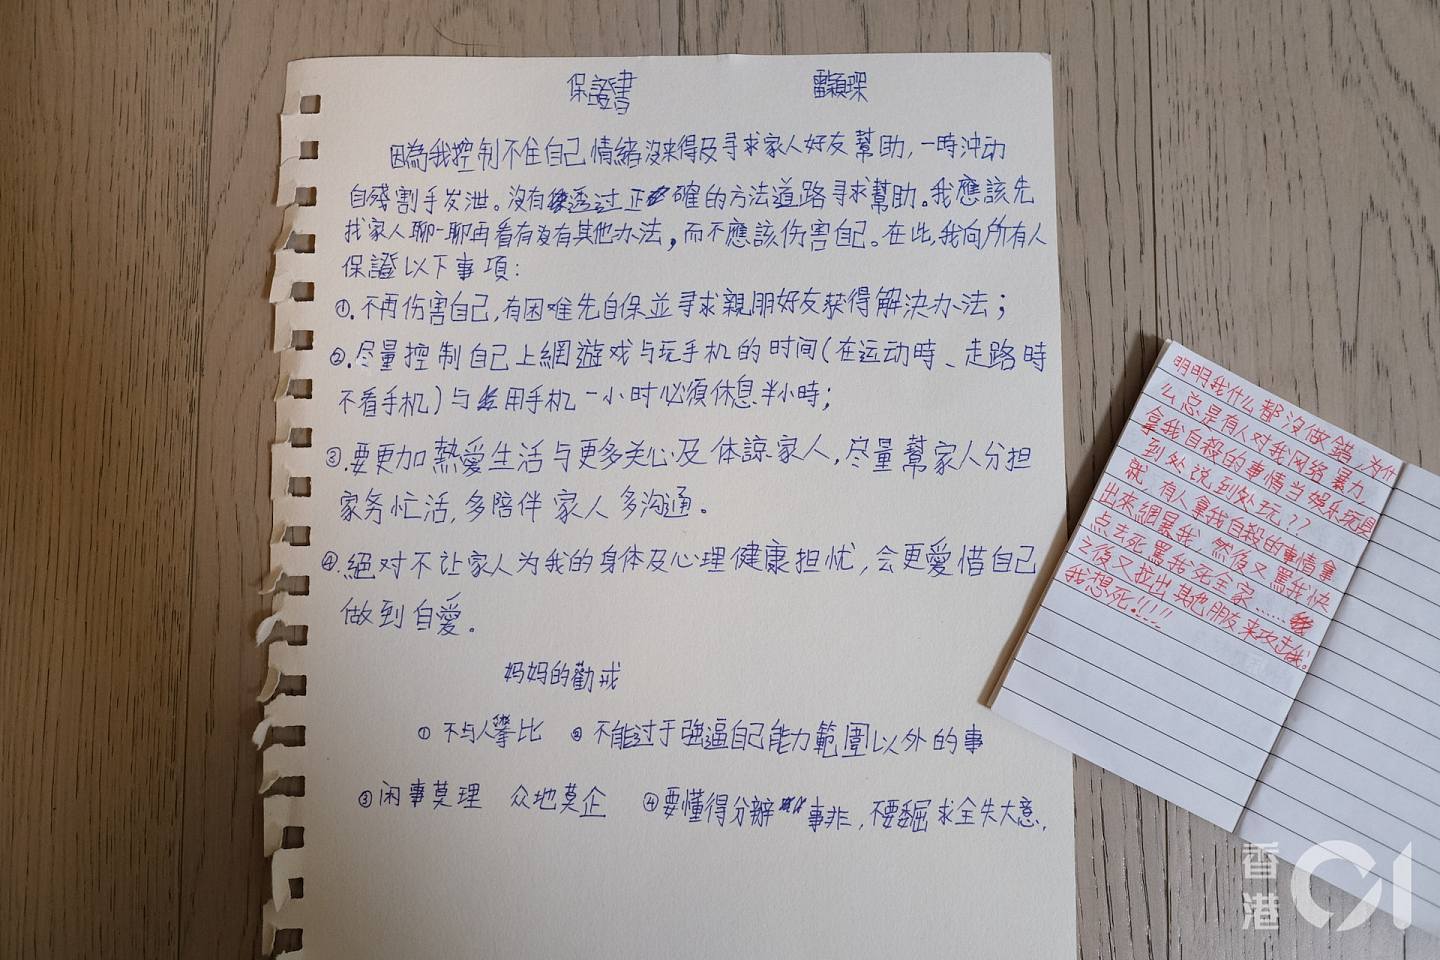 保證書 雷穎琛
因為我控制不住自己情緒沒來得及寻求家人好友幫助，一時沖动
自殘割手发泄。沒有透过正確的方法道路寻求幫助。我應該先
找家人聊一聊再看有沒有其他办法，而不應該伤害自己。在此，我向所有人
保證以下事項：
①.不再伤害自己，有困难先自保並寻求親朋好友获得解決办法；
②.尽量控制自己上網遊戏与玩手机的时间（在运动時、走路時
不看手机）与使用手机一小时必須休息半小時；
③.要更加熱愛生活与更多关心及体諒家人，尽量幫家人分担
家务忙活，多陪伴家人多沟通。
④.絕对不让家人为我的身体及心理健康担忧，会更愛惜自己
做到自愛。
妈妈的勸戒
①不与人攀比 ②不能过于強逼自己能力範圍以外的事
③闲事莫理 众地莫企 ④要懂得分辦事非，不要委屈求全失大意.
明明我什么都沒做錯，为什
么总是有人对我网络暴力，
拿我自殺的事情当娱乐玩具
到处说到处玩？？
就有人拿我自殺的事情拿
出來網暴我，然後又罵我快
点去死罵我死全家……
之後又拉出其他朋友來攻击我。
我想死！！！！
香港01